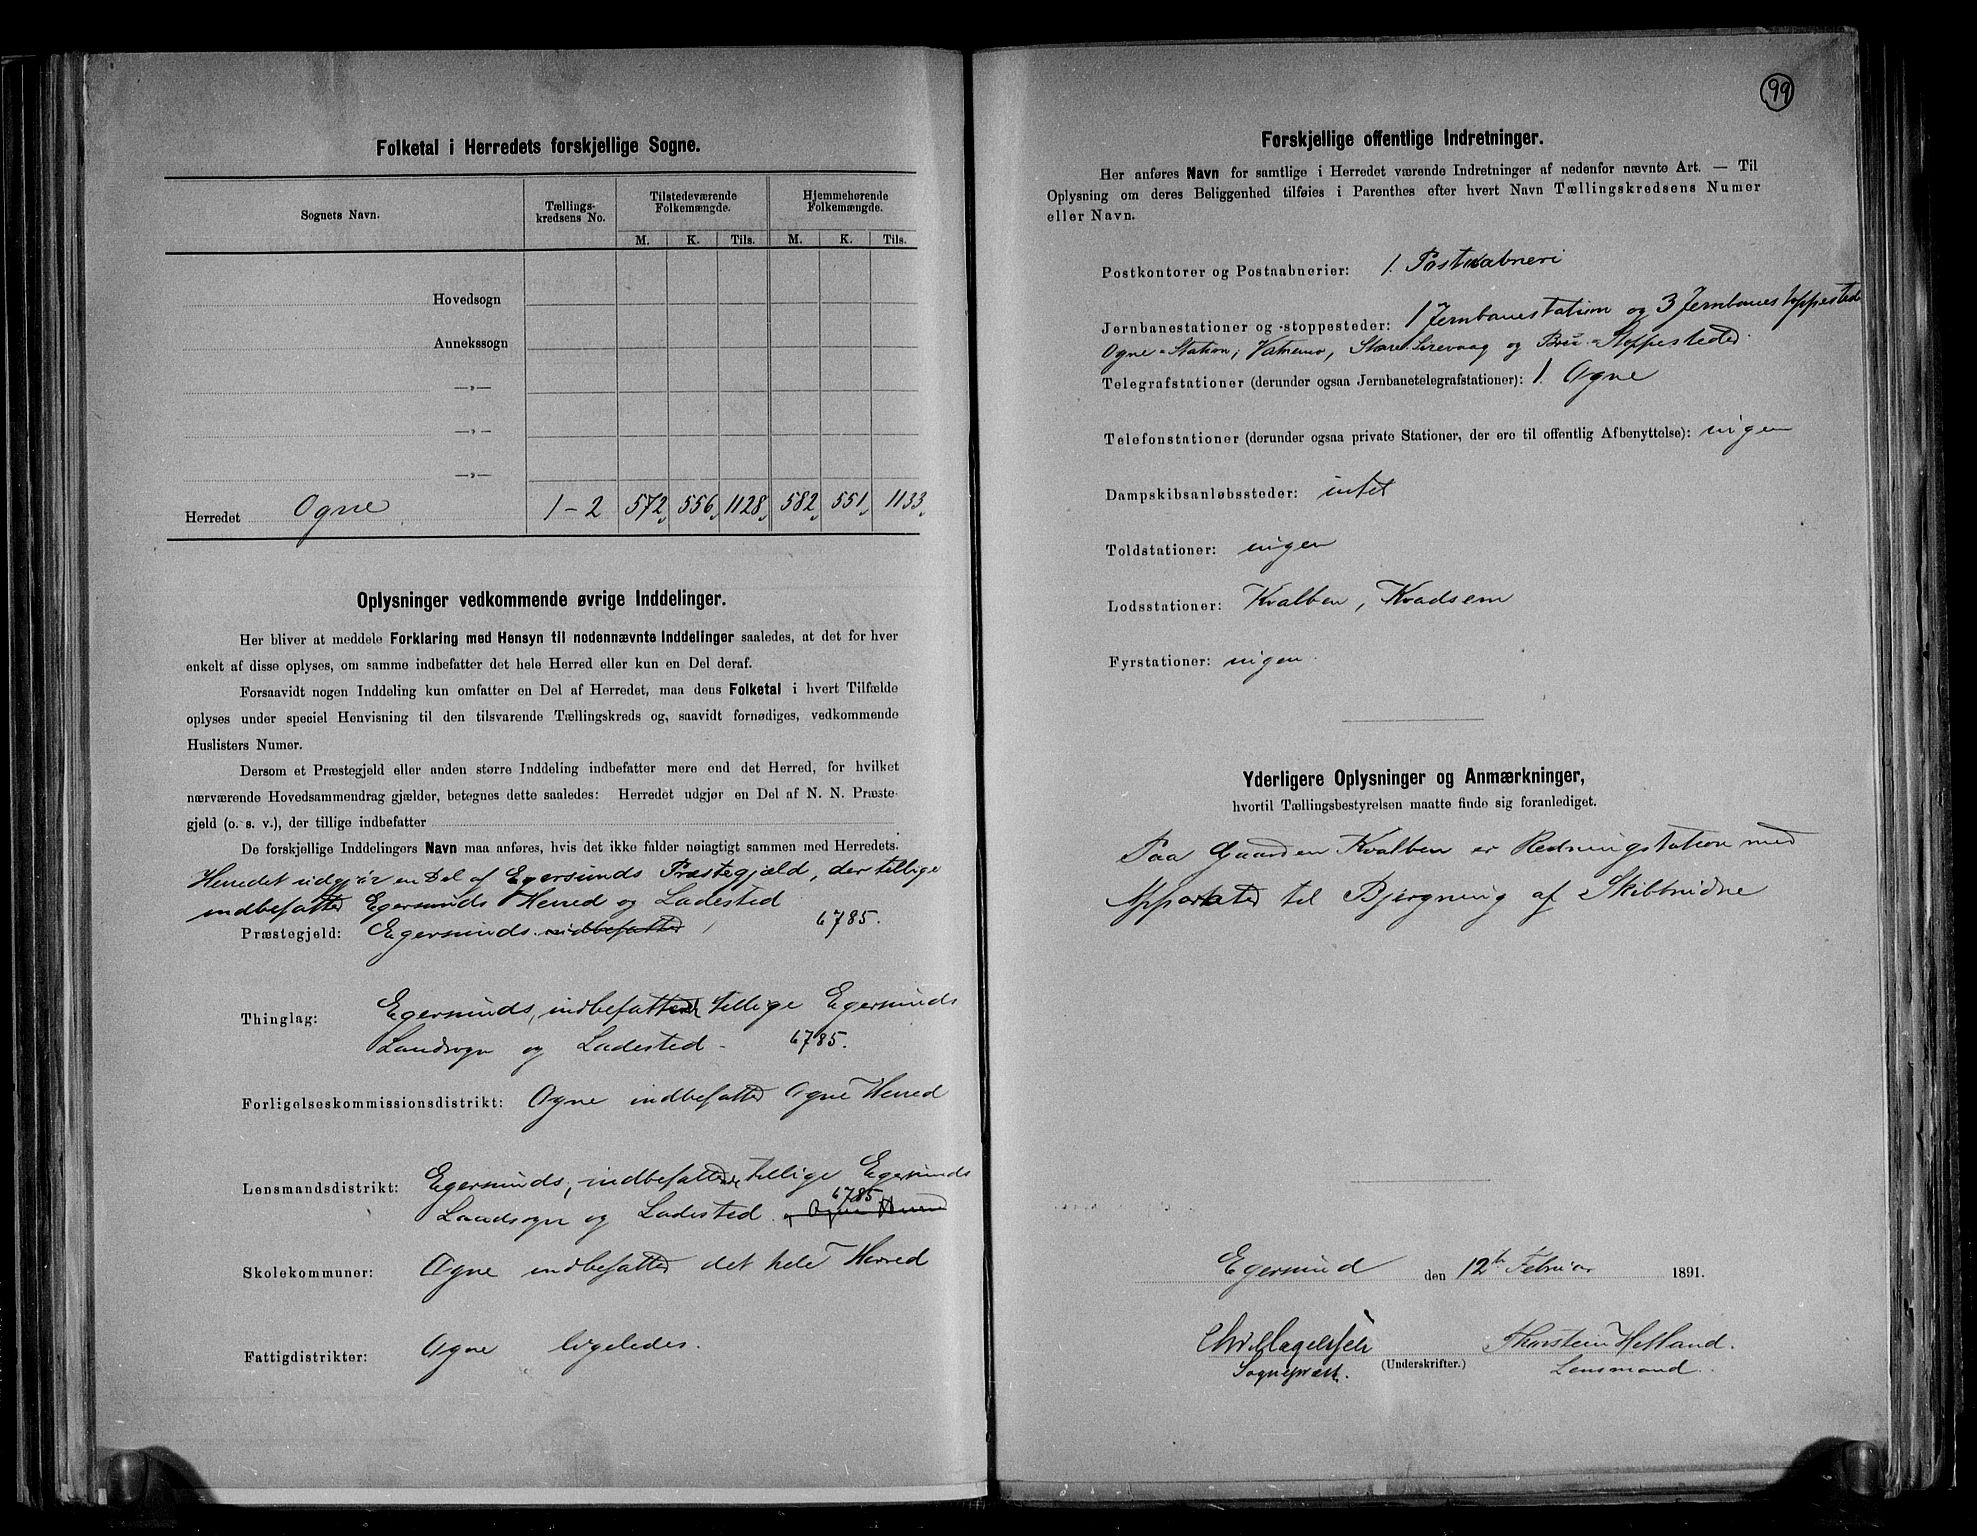 Folketal i Herredets forskjellige Sogne.
Sognets Navn. Tællings- kredsens No. Tilstedeværende Folkemængde. Hjemmehørende Folkemængde.
M. K. Tils. M. K. Tils.
Hovedsogn
Annekssogn
—„—
—„—
—„—
Herredet Ogne 1-2 572 556 1128 582 551 1133
Oplysninger vedkommende øvrige Inddelinger.
Her bliver at meddele Forklaring med Hensyn til nedennævnte Inddelinger saaledes, at det for hver
enkelt af disse oplyses, om samme indbefatter det hele Herred eller kun en Del deraf.
Forsaavidt nogen Inddeling kun omfatter en Del af Herredet, maa dens Folketal i hvert Tilfælde
oplyses under speciel Henvisning til den tilsvarende Tællingskreds og, saavidt fornødiges, vedkommende
Huslisters Numer.
Dersom et Præstegjeld eller anden større Inddeling indbefatter mere end det Herred, for hvilket
nærværende Hovedsammendrag gjælder, betegnes dette saaledes: Herredet udgjør en Del af N. N. Præste-
gjeld (o. s. v.), der tillige indbefatter
De forskjellige Inddelingers Navn maa anføres, hvis det ikke falder nøiagtigt sammen med Herredets.
Herredet udgjør en Del af Egersunds Præstegjæld, der tillige
indbefatter Egersunds Herred og Ladested
Præstegjeld: Egersunds. indbefatter 6785.
Thinglag: Egersunds, indbefattende tillige Egersunds
Landsogn og Ladested. 6785.
Forligelseskommissionsdistrikt: Ogne indbefatter Ogne Herred
Lensmandsdistrikt: Egersunds, indbefattende tillige Egersunds
Landsogn og Ladested. 6785 og Ogne Herred
Skolekommuner: Ogne indbefatter det hele Herred
Fattigdistrikter: Ogne ligeledes.
99
Forskjellige offentlige Indretninger.
Her anføres Navn for samtlige i Herredet værende Indretninger af nedenfor nævnte Art. — Til
Oplysning om deres Beliggenhed tilføies i Parenthes efter hvert Navn Tællingskredsens Numer
eller Navn.
Postkontorer og Postaabnerier: 1. Postaabneri
Jernbanestationer og -stoppesteder: 1 Jernbanestation og 3 Jernbanestoppesteder
Ogne-Station, Vatnemo, Store Sirevaag og Bru-Stoppesteder.
Telegrafstationer (derunder ogsaa Jernbanetelegrafstationer): 1. Ogne
Telefonstationer (derunder ogsaa private Stationer, der ere til offentlig Afbenyttelse): ingen
Dampskibsanløbssteder: intet
Toldstationer: ingen
Lodsstationer: Kvalben, Kvadsem
Fyrstationer: ingen.
Yderligere Oplysninger og Anmærkninger,
hvortil Tællingsbestyrelsen maatte finde sig foranlediget.
Paa Gaarden Kvalben er Redningstation med
Apparater til Bjergning af Skibbrudne
Egersund den 12te Februar 1891.
Thorstein Helland.
Sognepræst. (Underskrifter.) Lensmand.